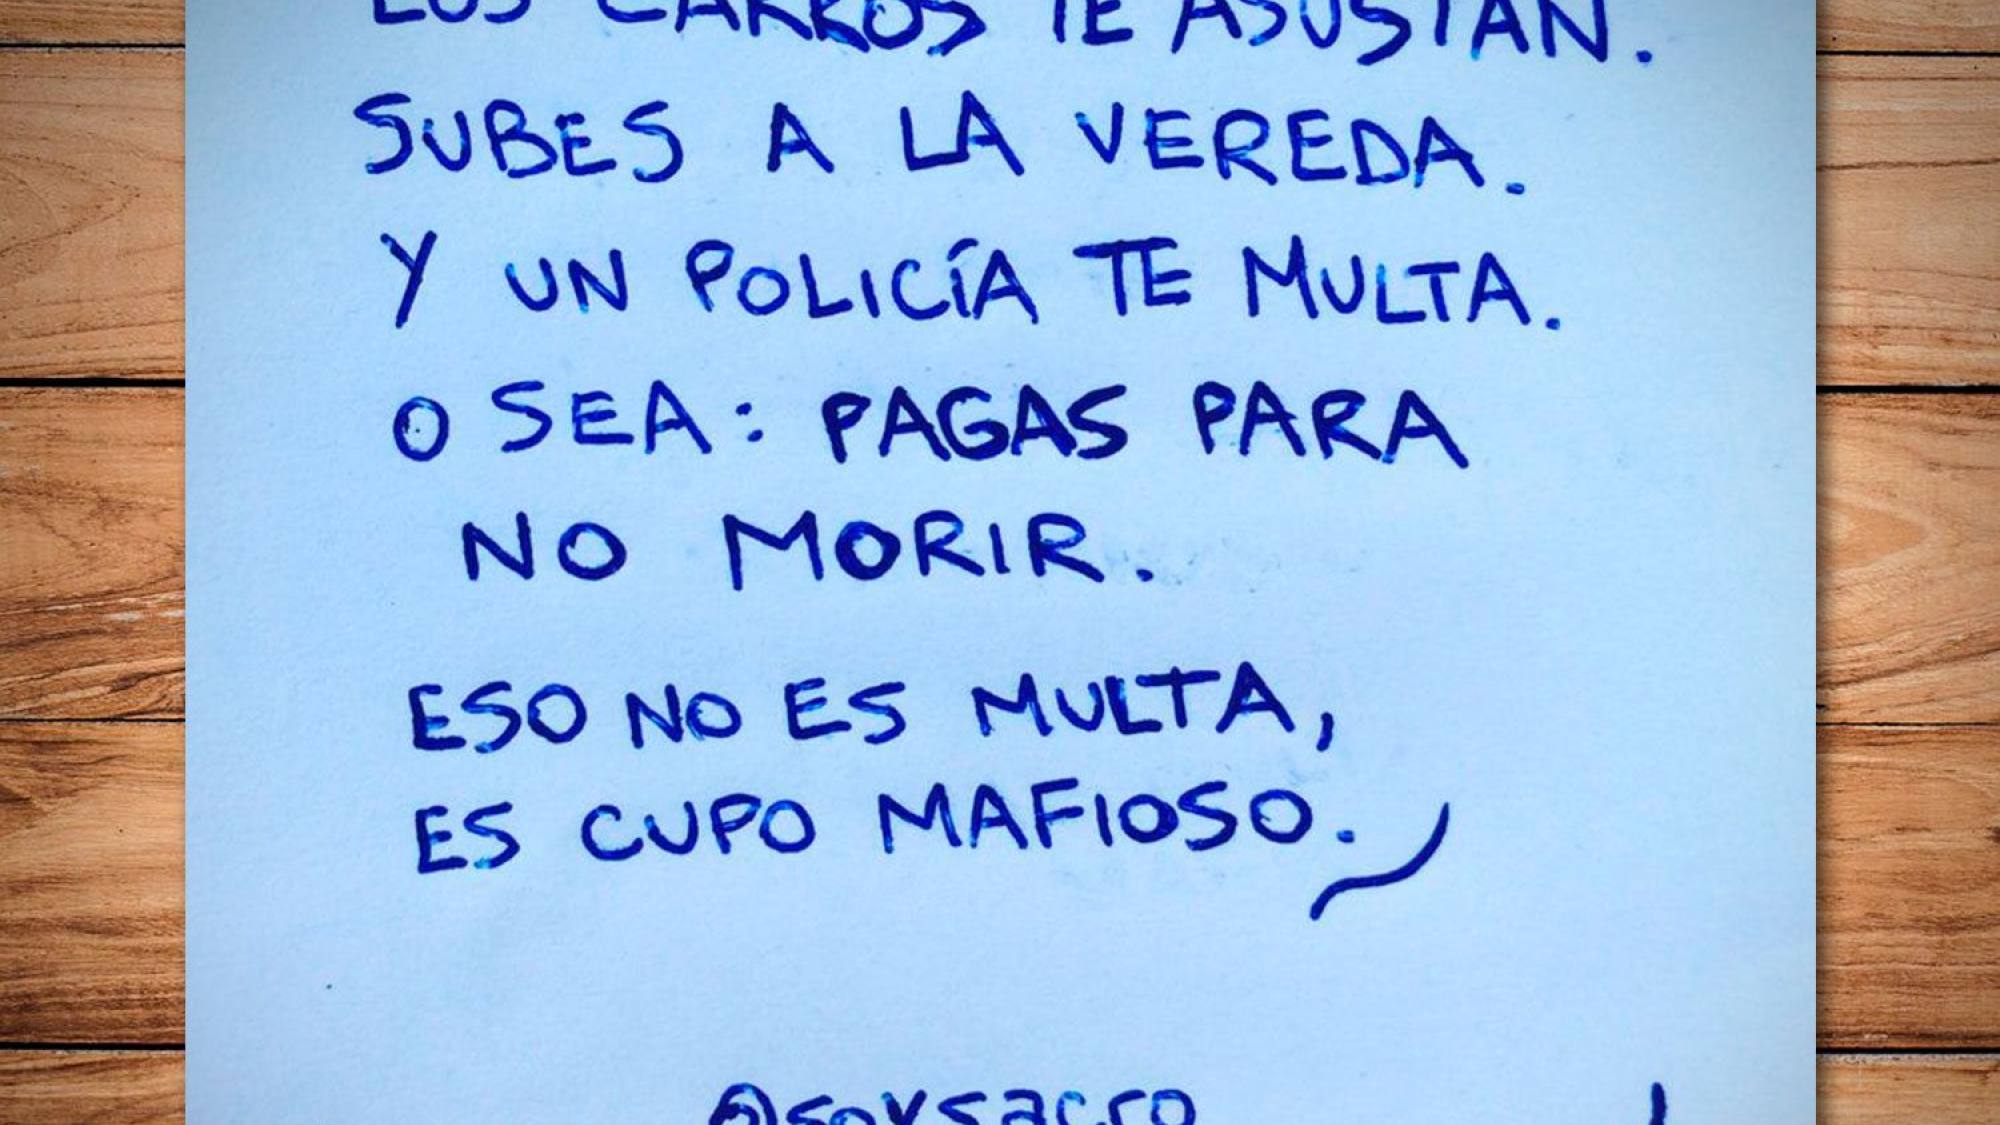 LOS CARROS TE ASUSTAN.
SUBES A LA VEREDA.
Y UN POLICÍA TE MULTA.
O SEA: PAGAS PARA
NO MORIR.
ESO NO ES MULTA,
ES CUPO MAFIOSO.
@soysacro